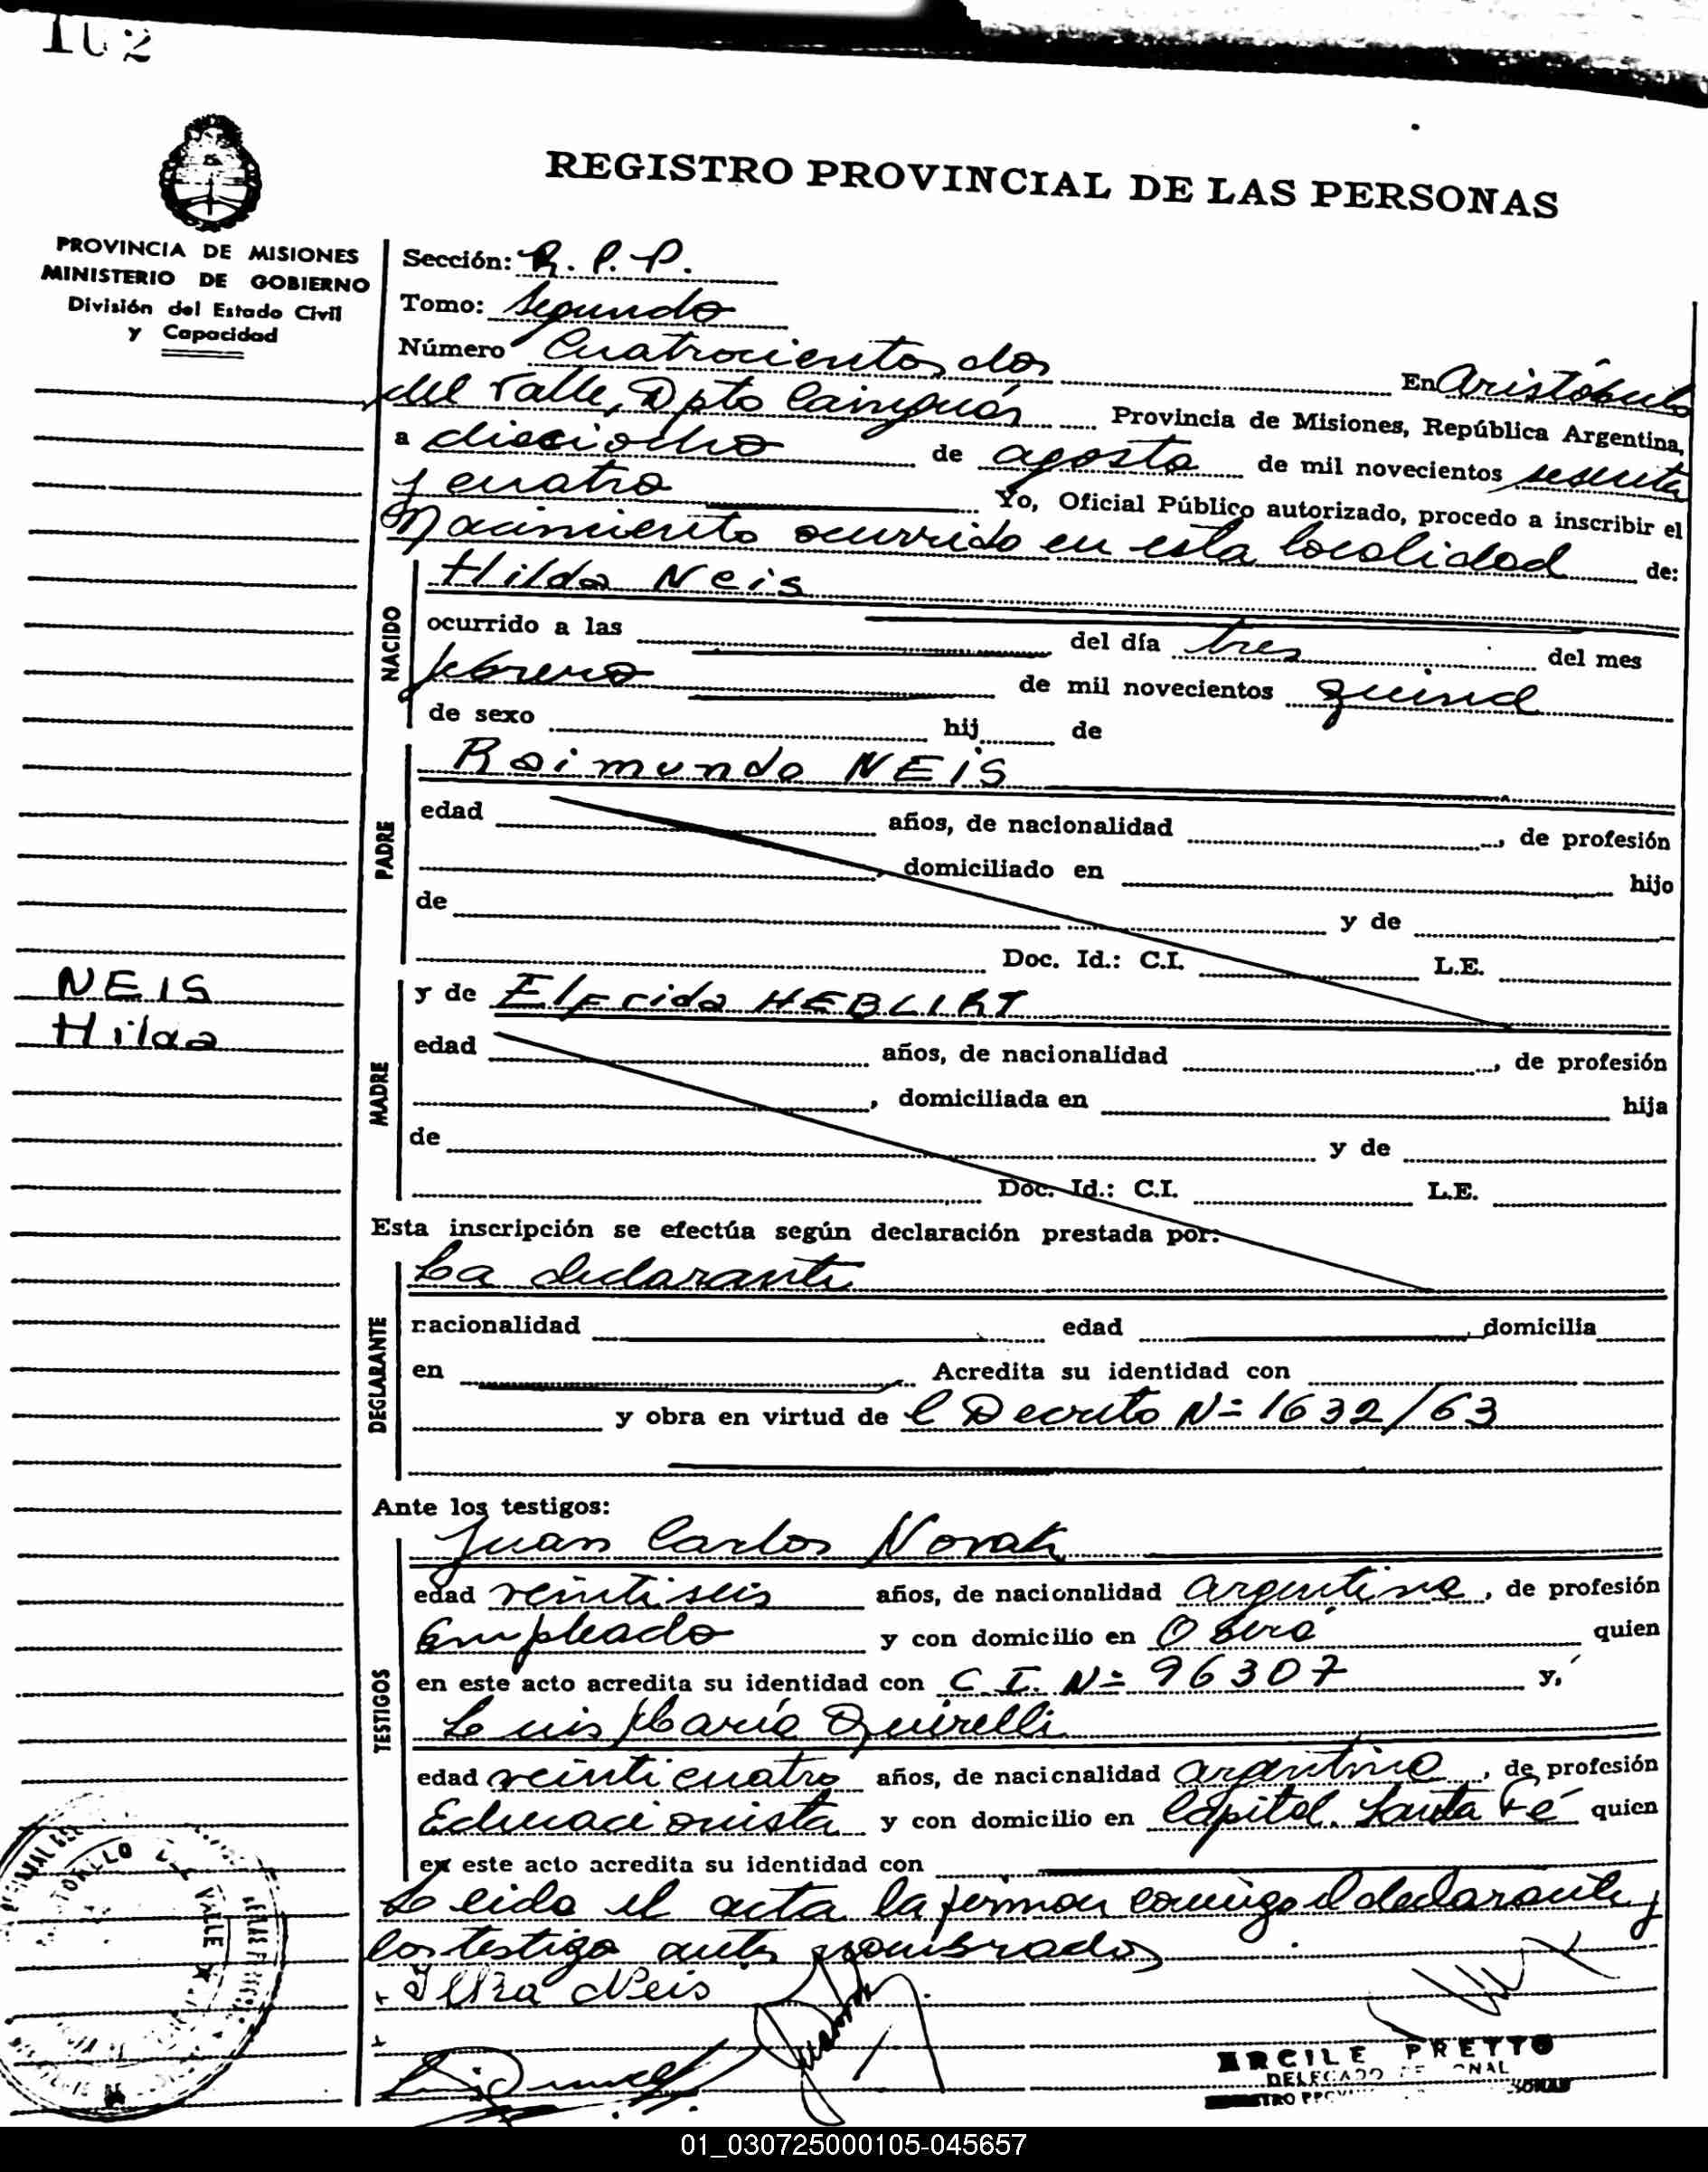 102
REGISTRO PROVINCIAL DE LAS PERSONAS
PROVINCIA DE MISIONES
MINISTERIO DE GOBIERNO
División del Estado Civil
y Capacidad
Sección: R. P. P.
Tomo: Segundo
Número Cuatrocientos dos En Aristóbulo
del Valle, Dpto Cainguás Provincia de Misiones, República Argentina,
a dieciocho de agosto de mil novecientos sesenta
y cuatro Yo, Oficial Público autorizado, procedo a inscribir el
Nacimiento ocurrido en esta localidad de:
NACIDO
Hilda Neis
ocurrido a las del día tres del mes
febrero de mil novecientos quince
de sexo hij de
PADRE
Raimundo NEIS
edad años, de nacionalidad , de profesión
, domiciliado en hijo
de y de
Doc. Id.: C.I. L.E.
NEIS
Hilda
MADRE
y de Elfrida
edad años, de nacionalidad , de profesión
, domiciliada en hija
de y de
Doc. Id.: C.I. L.E.
Esta inscripción se efectúa según declaración prestada por:
DECLARANTE
La declarante
nacionalidad edad domicilia
en Acredita su identidad con
y obra en virtud de l Decreto Nº 1632/63
Ante los testigos:
TESTIGOS
Juan Carlos Novak
edad veintiseis años, de nacionalidad argentina, de profesión
Empleado y con domicilio en Oberá quien
en este acto acredita su identidad con C. I. Nº 96307 y,
Luis María Quirelli
edad veinticuatro años, de nacionalidad argentino, de profesión
Educacionista y con domicilio en Capital. Santa Fé quien
en este acto acredita su identidad con
Leida el acta la firman conmigo el declarante y
los testigo antes nombrados
Ilka Neis
ERCILE PRETTO
DELEGADO
VALLE
01_030725000105-045657